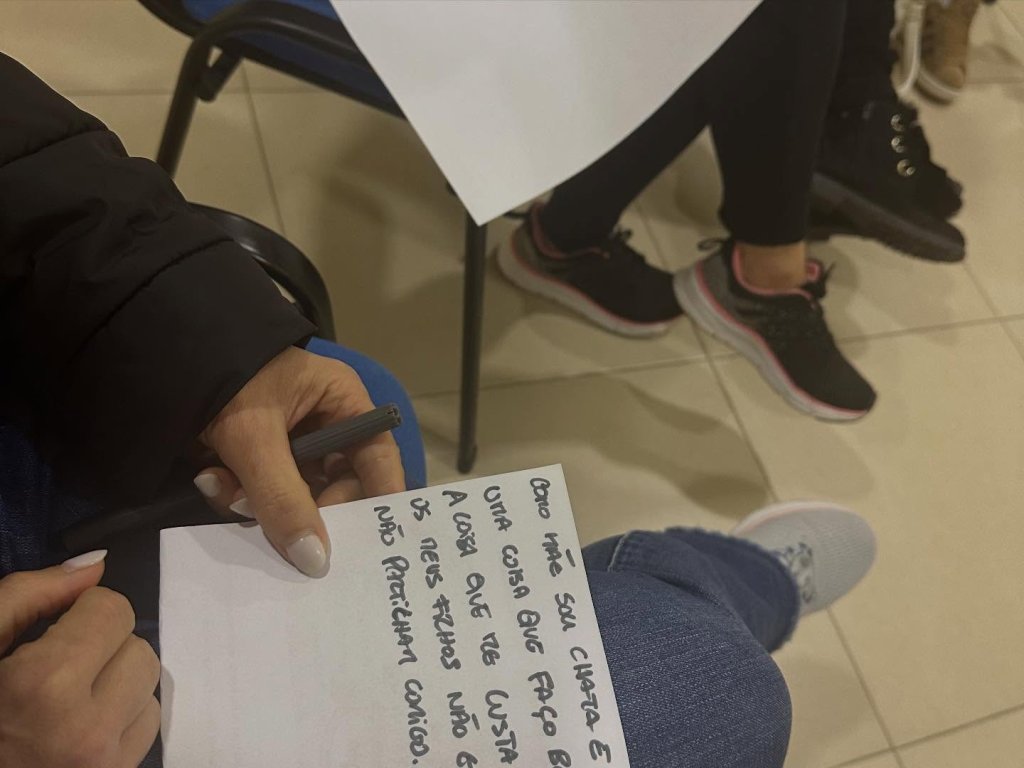 COMO MÃE SOU CHATA E
UMA COISA QUE FAÇO
A COISA QUE ME CUSTA
OS MEUS FILHOS NÃO
NÃO PARTILHAM COMIGO.